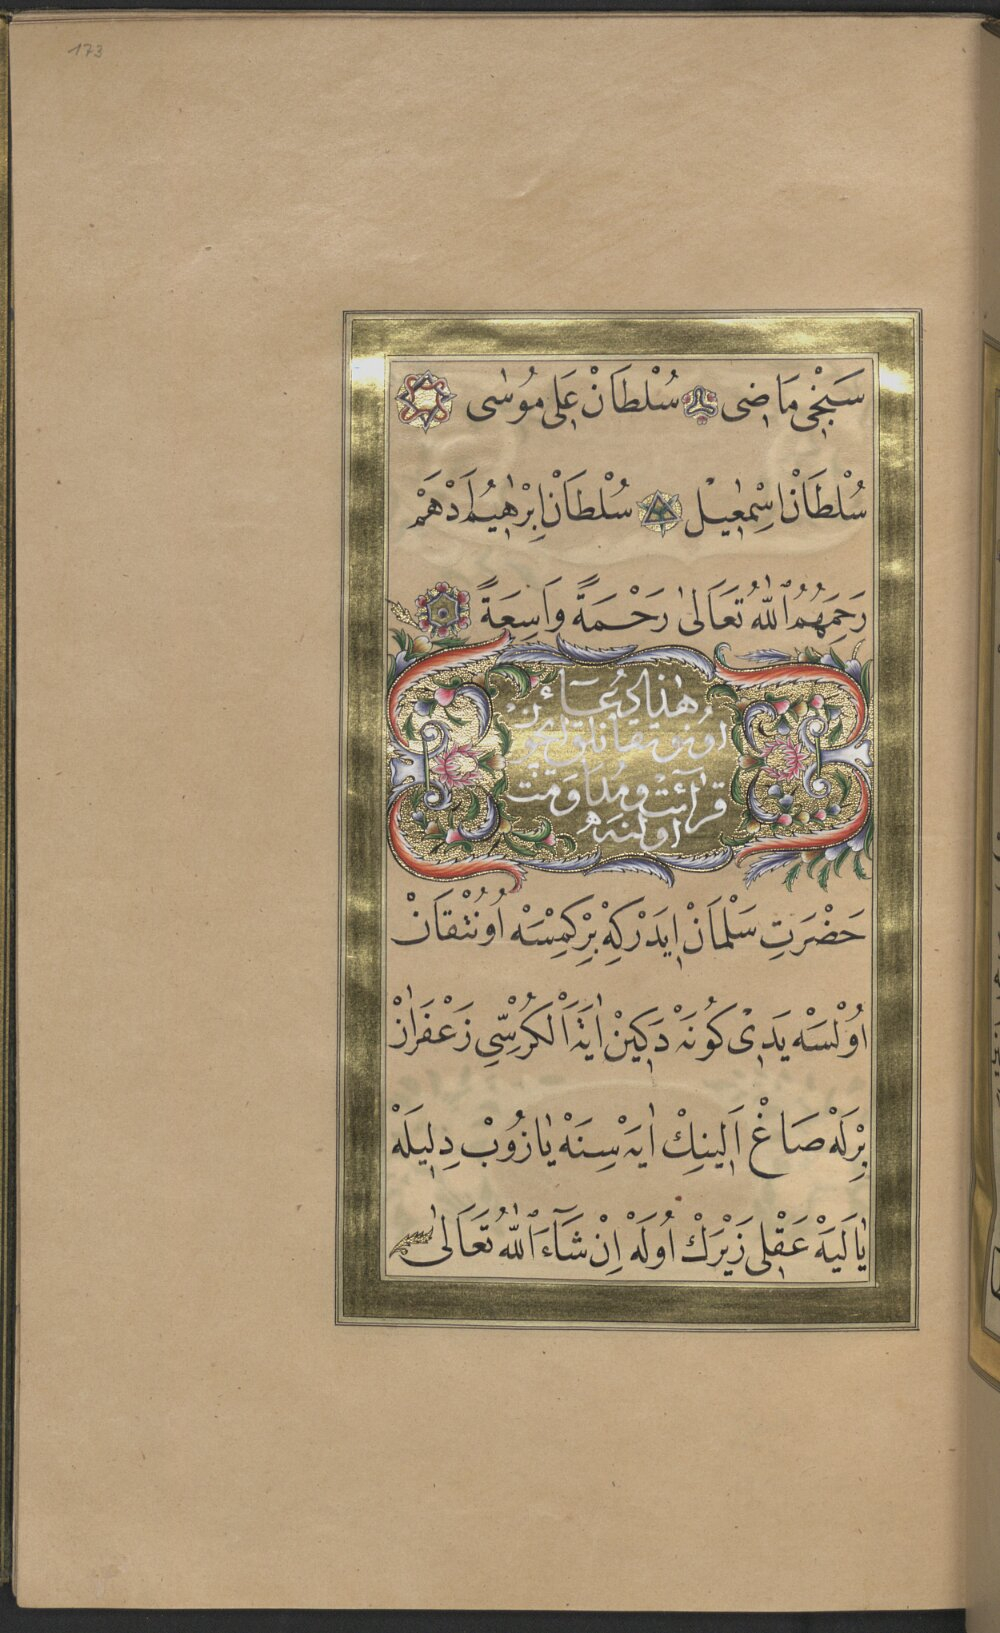 173
سَنْجٖى مَاضِى سُلْطَانْ عَلٖى مُوسٰى
سُلْطَانْ اِسْمٰعٖيلْ سُلْطَانْ اِبْرٰهٖيمُ اَدْهَمْ
رَحِمَهُمُ اللّٰهُ تَعَالٰى رَحْمَةً وَاسِعَةً
هٰذَا دُعَاءِ
اونوتقانلق ايچون
قرائت و مداومت
اولنه
حَضْرَتِ سَلْمَانْ اِيدَرْكِهْ بِرْ كِمْسَهْ اُونُتْقَانْ
اُوْلْسَهْ يَدِى كُونَهْ دَكِينْ اٰيَةَ الْكُرْسِّىِ زَعْفَرَانْ
بِرْلَهْ صَاغْ اَلِينِكْ اٰيَهْ سِنَهْ يَازُوبْ دِلِيلَهْ
يَالَيَهْ عَقْلِى زَيْرَكْ اُولَهْ اِنْ شَآءَ اللّٰهُ تَعَالٰى